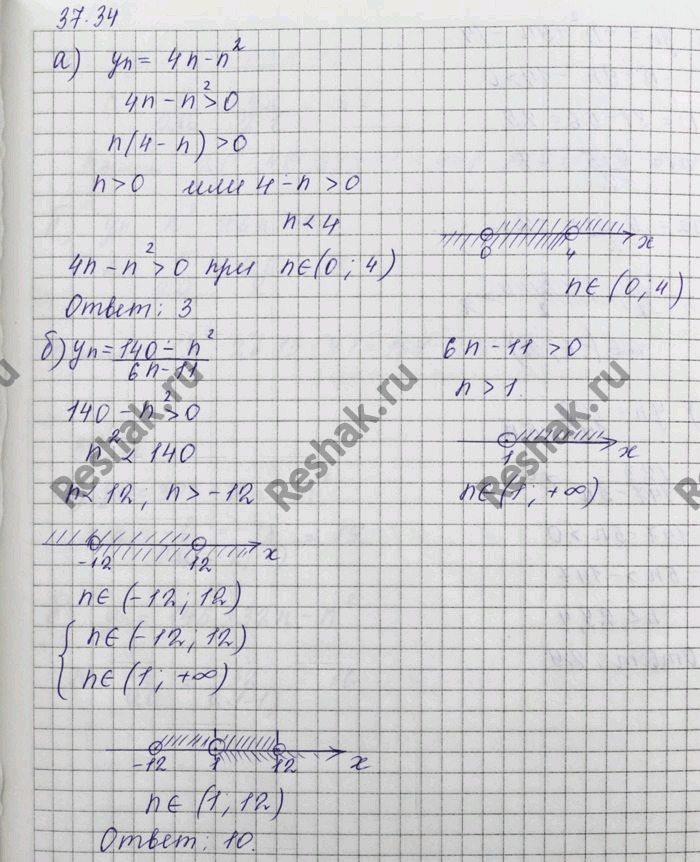 37.34
а) yn = 4n - n²
4n - n² > 0
n(4 - n) > 0
n > 0 или 4 - n > 0
n < 4
0 4 x
4n - n² > 0 при n∈(0; 4)
n∈(0; 4)
Ответ: 3
б) yn = 140 - n² / 6n - 11
6n - 11 > 0
n > 1
140 - n² > 0
n² < 140
1 x
n < 12; n > -12
n∈(1; +∞)
-12 12 x
n∈(-12; 12)
{ n∈(-12; 12)
n∈(1; +∞)
-12 1 12 x
n∈(1; 12)
Ответ: 10.
Reshak.ru
Reshak.ru
Reshak.ru